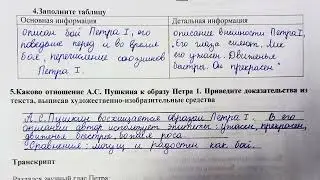 4.Заполните таблицу
Основная информация
Детальная информация
описан бой Петра I, его
поведение перед и во время
боя, перечисление союзников
Петра I.
описание внешности Петра I,
"Его глаза сияют. Лик
его ужасен. Движенья
быстры. Он прекрасен"
5.Каково отношение А.С. Пушкина к образу Петра 1. Приведите доказательства из
текста, выписав художественно-изобразительные средства
А.С.Пушкин восхищается образом Петра I. В его
описании автор использует эпитеты: ужасен, прекрасен,
движенья быстры,
Сравнения: могущ и радостен как бой.
Транскрипт
Раздался звучный глас Петра